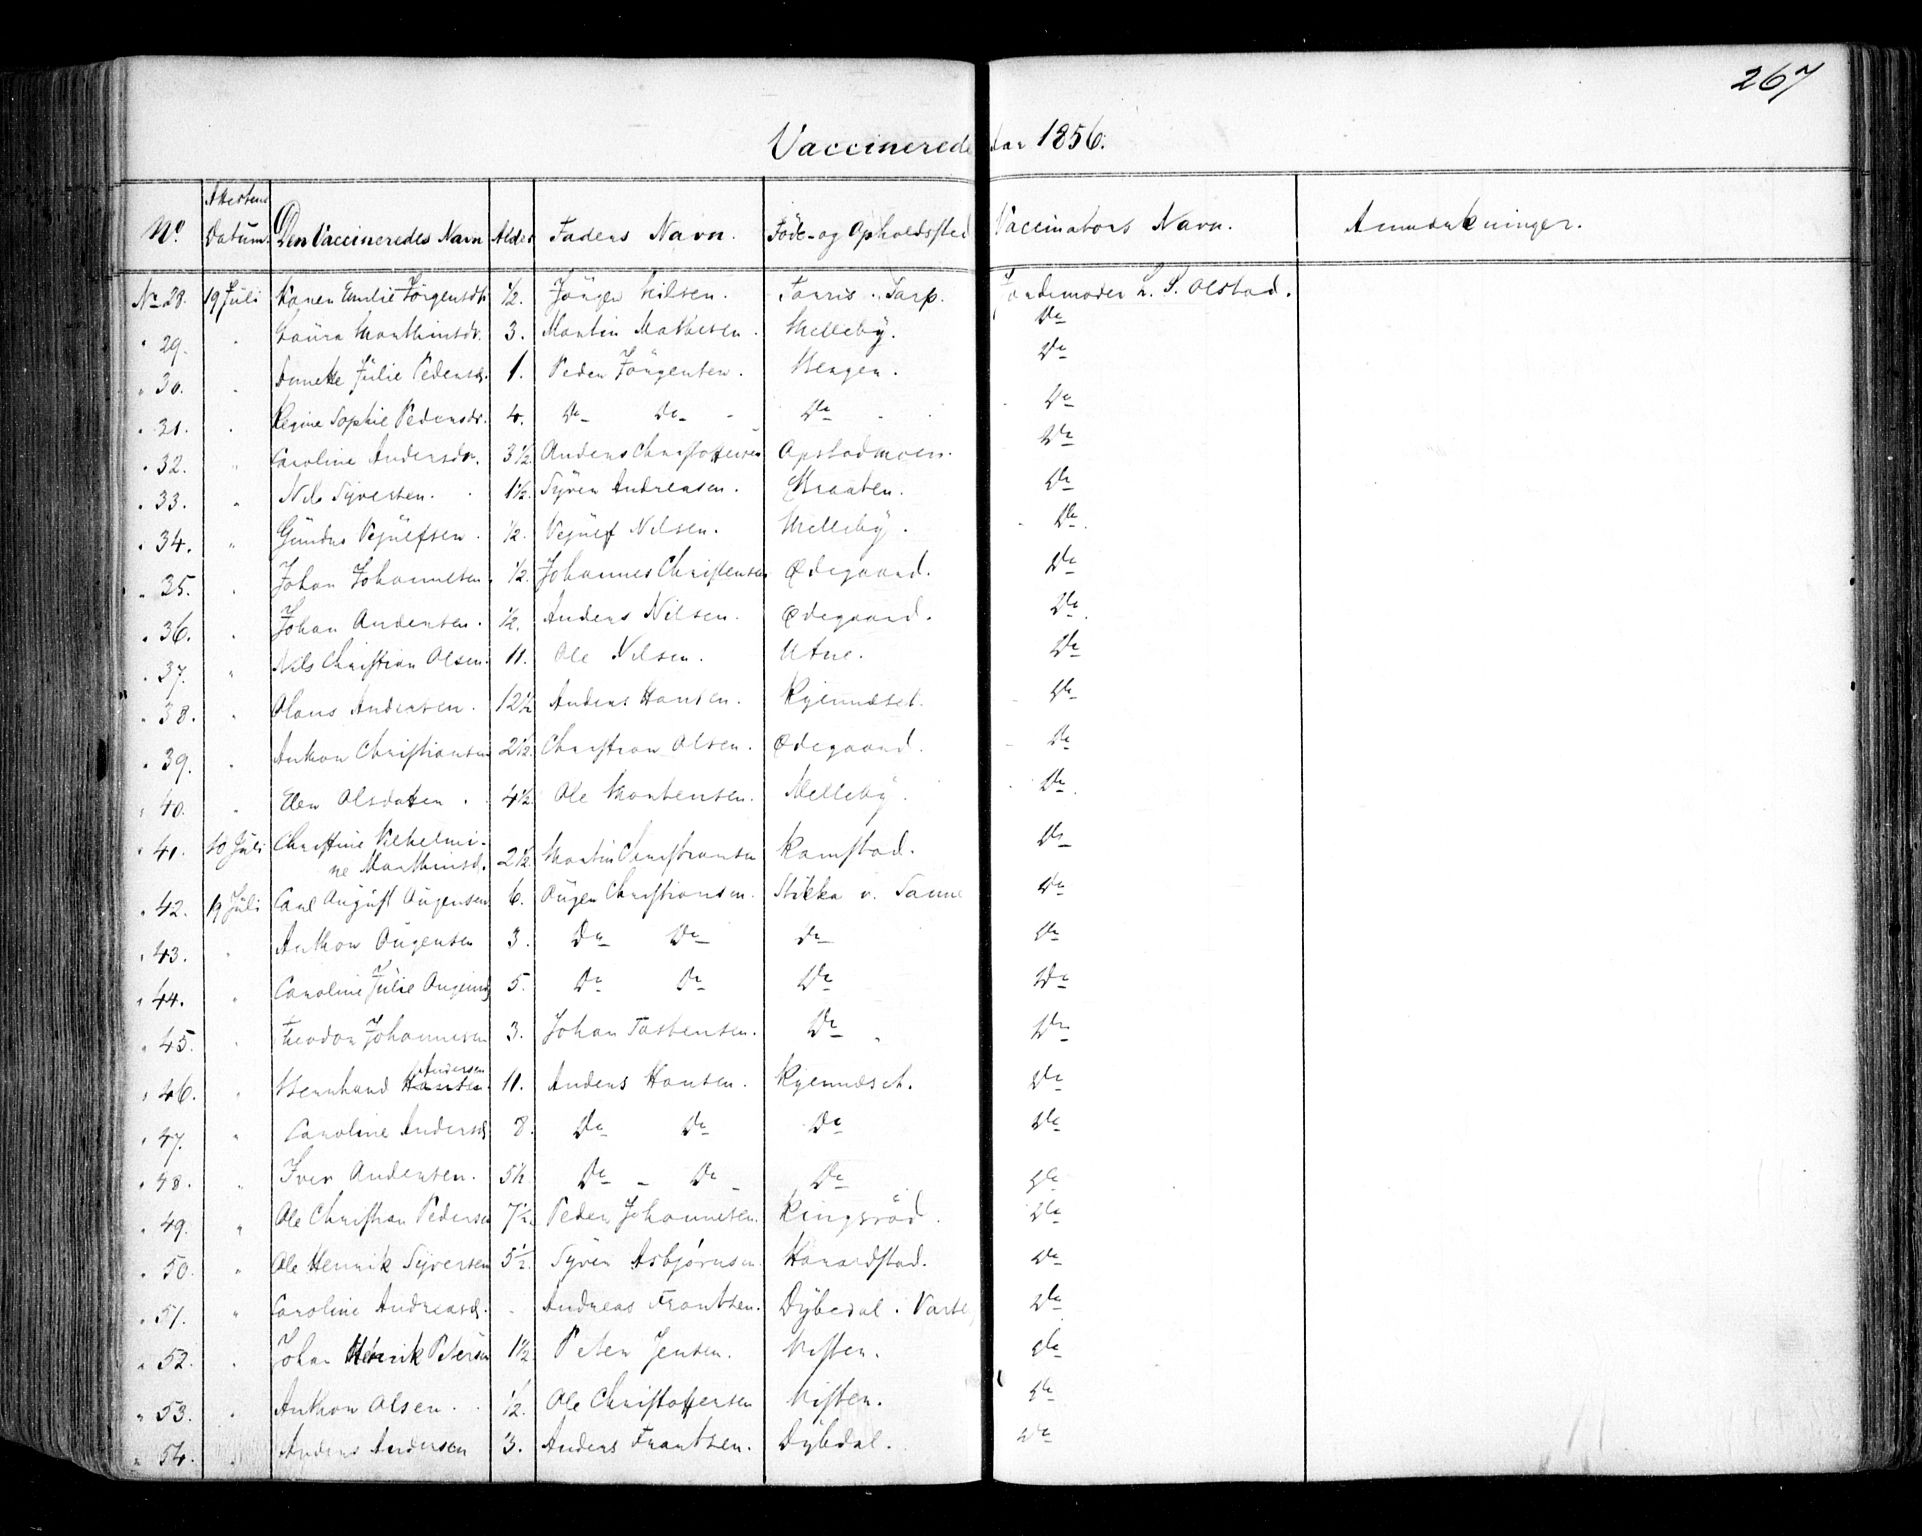 267
Vaccinerede for 1856.
No. Attestens Datum. Den Vaccineredes Navn Alder Faders Navn. Føde- og Opholdssted Vaccinators Navn. Anmærkninger.
No 28. 19 Juli Karen Emilie Jörgensdtr ½. Jörgen Nilsen. Torris Jordemoder L. S. Olstad.
" 29. " Laura Marthinsdr. 3. Martin Mathisen. Melleby. Do
" 30. " Annette Julie Pedersd. 1. Peder Jörgensen. Do
" 31. " Regine Sophie Pedersdr. 4. Do Do Do Do
" 32. " Caroline Andersdr. 3½ Anders Christoffersen Opstadmoen. Do
" 33. " Nils Syversen. 1½. Syver Andreasen. Braaten. Do
" 34. " Gunder Vejulfsen ½. Vejulf Nilsen. Melleby. Do
" 35. " Johan Johannesen. ½. Johannes Christensen Ødegaard. Do
" 36. " Johan Andersen. ½. Anders Nilsen. Ødegaard. Do
" 37. " Nils Christian Olsen. 11. Ole Nilsen. Utne. Do
" 38. " Olaus Andersen. 12½ Anders Hansen. Kjennæset. Do
" 39. " Anthon Christiansen 2½. Christian Olsen. Ødegaard. Do
" 40. " Elen Olsdatter. 4½ Ole Mortensen. Melleby. Do
" 41. 10 Juli Christine Vilhelmi-
ne Marthinsd. 2½ Martin Christiansen Kamstad. Do
" 42. 19 Juli Carl August Augensen 6. Augen Christiansen. Stikka v. Do
" 43. " Anthon Augensen 3. Do Do Do Do
" 44. " Caroline Julie Augensd 5. Do Do Do Do
" 45. " Theodor Johannesen 3. Johan Tostensen. Do Do
" 46. " Bernhard Hansen Andersen 11. Anders Hansen. Kjennæset. Do
" 47. " Caroline Andersd 8. Do Do Do Do
" 48. " Iver Andersen. 5½. Do Do Do Do
" 49. " Ole Christian Pedersen 7½. Peder Johannesen. Ringsröd. Do
" 50. " Ole Henrik Syversen 5½. Syver Asbjørnsen Haraldstad. Do
" 51. " Caroline Andreasd. - Andreas Frantsen. Dybedal. Do
" 52. " Johan Henrik Petersen 1½ Peter Jensen. Visten. Do
" 53. " Anthon Olsen. ½. Ole Christoffersen Visten. Do
" 54. " Anders Andersen 3. Anders Frantsen. Dybdal. Do